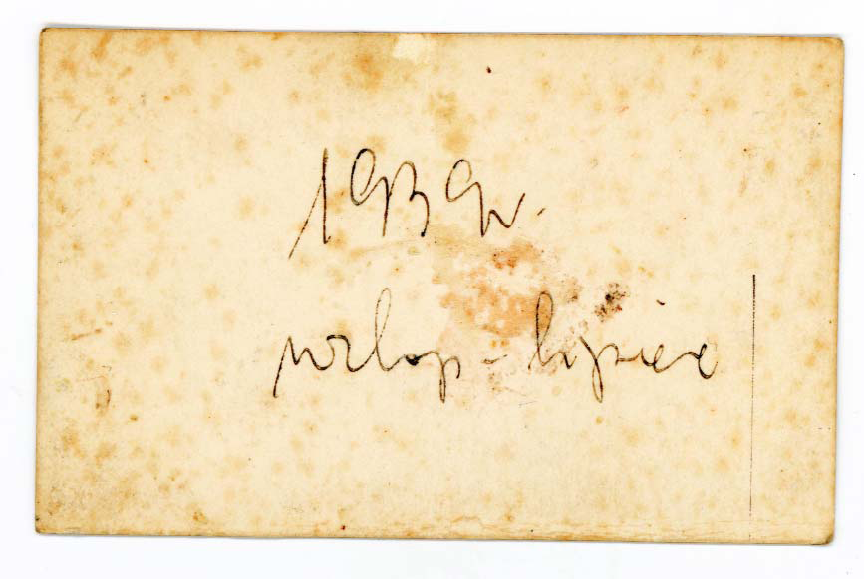 1939r.
urlop - lipiec